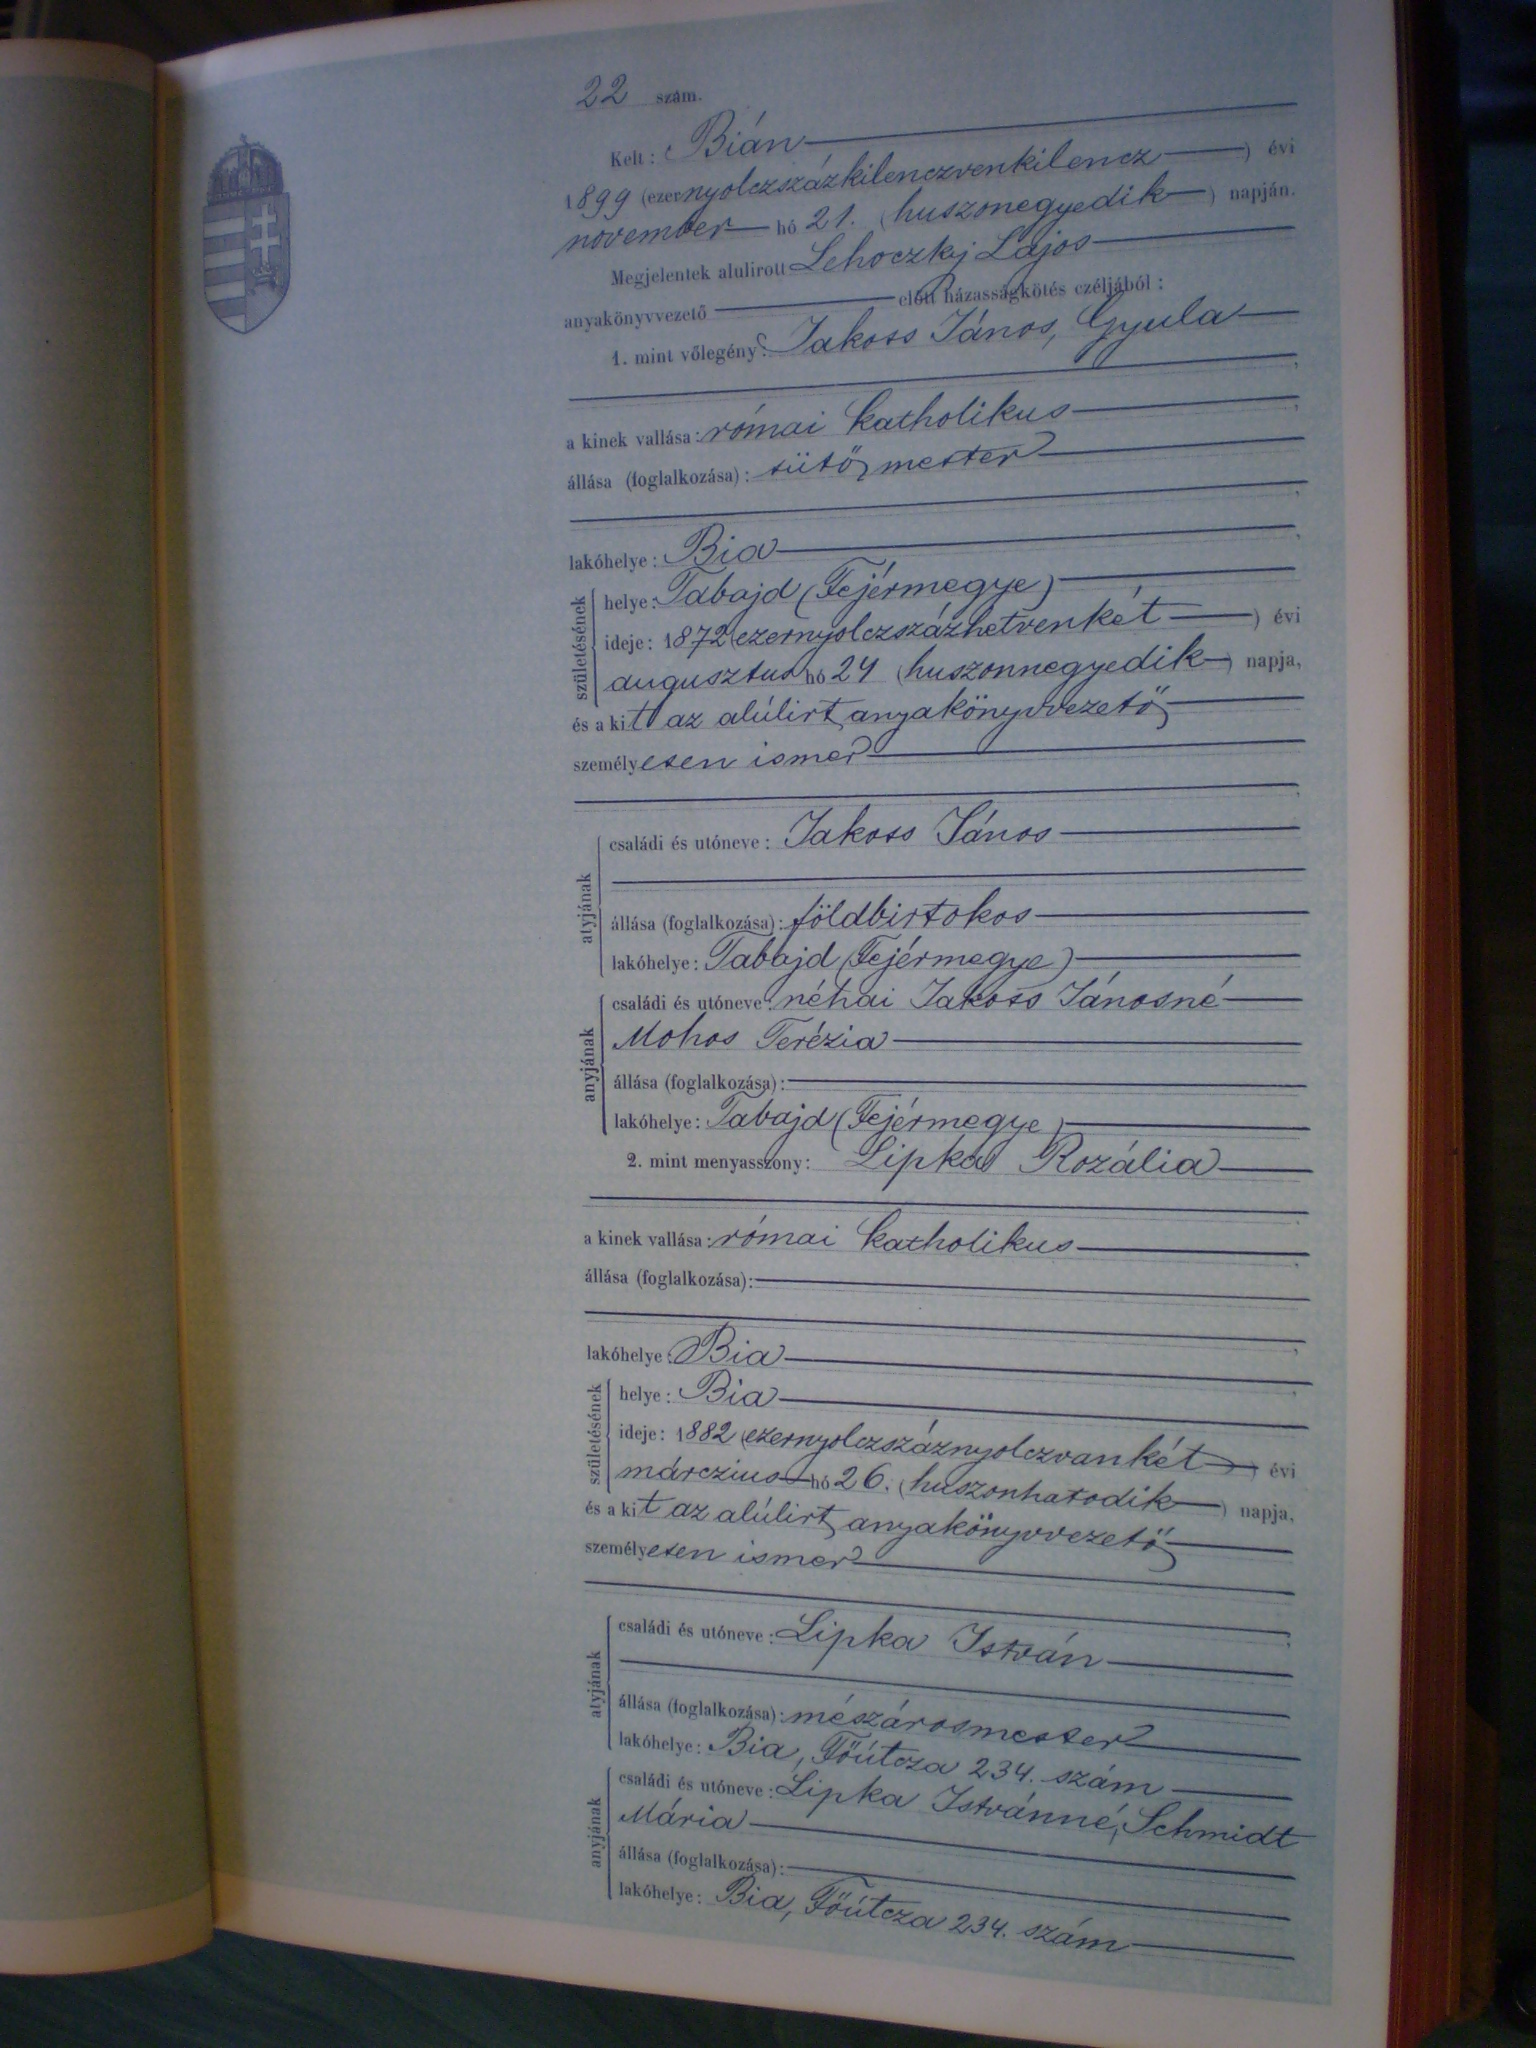 22 szám.
Kelt: Bián
1899 (ezernyolczszázkilenczvenkilencz) évi
november hó 21. (huszonegyedik) napján.
Megjelentek alulirott Lehoczky Lajos
anyakönyvvezető előtt házasságkötés czéljából:
1. mint vőlegény: Jakoss János, Gyula
a kinek vallása: római katholikus
állása (foglalkozása): sütő mester
lakóhelye: Bia
születésének
helye: Tabajd (Fejérmegye)
ideje: 1872 (ezernyolczszázhetvenkét) évi
augusztus hó 24 (huszonnegyedik) napja,
és a kit az alúlirt anyakönyvvezető
személyesen ismer
atyjának
családi és utóneve: Jakoss János
állása (foglalkozása): földbirtokos
lakóhelye: Tabajd (Fejérmegye)
anyjának
családi és utóneve: néhai Jakoss Jánosné
Mohos Terézia
állása (foglalkozása):
lakóhelye: Tabajd (Fejérmegye)
2. mint menyasszony: Lipka Rozália
a kinek vallása: római katholikus
állása (foglalkozása):
lakóhelye: Bia
születésének
helye: Bia
ideje: 1882 (ezernyolczszáznyolczvankét) évi
márczius hó 26. (huszonhatodik) napja,
és a kit az alúlirt anyakönyvvezető
személyesen ismer
atyjának
családi és utóneve: Lipka István
állása (foglalkozása): mészárosmester
lakóhelye: Bia, Főútcza 234. szám
anyjának
családi és utóneve: Lipka Istvánné, Schmidt
Mária
állása (foglalkozása):
lakóhelye: Bia, Főútcza 234. szám